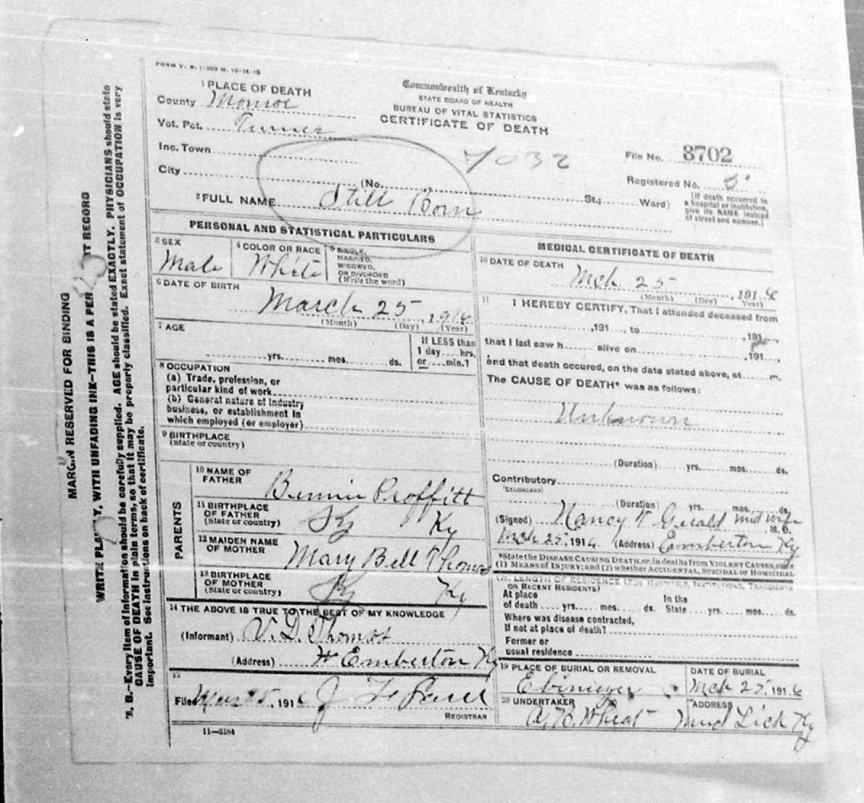 FORM V. S. 1-
1 PLACE OF DEATH
County Monroe
Vot. Pct. Turner
Inc. Town
City
(No. St.; Ward)
Commonwealth of Kentucky
STATE BOARD OF HEALTH
BUREAU OF VITAL STATISTICS
CERTIFICATE OF DEATH
7032
File No. 8702
Registered No. 5
[If death occurred in a hospital or institution, give its NAME instead of street and number.]
2 FULL NAME Still Born
PERSONAL AND STATISTICAL PARTICULARS
3 SEX Male
4 COLOR OR RACE White
5 SINGLE, MARRIED, WIDOWED, OR DIVORCED (Write the word)
6 DATE OF BIRTH March 25, 1916
(Month) (Day) (Year)
7 AGE
yrs. mos. ds.
If LESS than 1 day hrs. or min.?
8 OCCUPATION
(a) Trade, profession, or particular kind of work
(b) General nature of industry business, or establishment in which employed (or employer)
9 BIRTHPLACE
(State or country)
PARENTS
10 NAME OF FATHER Bennie Proffitt
11 BIRTHPLACE OF FATHER (State or country) Ky Ky
12 MAIDEN NAME OF MOTHER Mary Bell Thomas
13 BIRTHPLACE OF MOTHER (State or country) Ky Ky
14 THE ABOVE IS TRUE TO THE BEST OF MY KNOWLEDGE
(Informant) V. D. Thomas
(Address) Emberton Ky
15
Filed 191 6
REGISTRAR
11—3184
MEDICAL CERTIFICATE OF DEATH
16 DATE OF DEATH Mch 25, 1916
(Month) (Day) (Year)
17 I HEREBY CERTIFY, That I attended deceased from
,191 to ,191
that I last saw h alive on ,191
and that death occured, on the date stated above, at m.
The CAUSE OF DEATH* was as follows:
Unknown
(Duration) yrs. mos. ds.
Contributory
(SECONDARY)
(Duration) yrs. mos. ds.
(Signed) Nancy Mid Wife M. D.
Mch 25, 1916 (Address) Emberton Ky
*State the DISEASE CAUSING DEATH, or, in deaths from VIOLENT CAUSES, state
(1) MEANS OF INJURY; and (2) whether ACCIDENTAL, SUICIDAL OR HOMICIDAL
18 LENGTH OF RESIDENCE (FOR HOSPITALS, INSTITUTIONS, TRANSIENTS OR RECENT RESIDENTS)
At place of death yrs. mos. ds.
In the State yrs. mos. ds.
Where was disease contracted,
If not at place of death?
Former or usual residence
19 PLACE OF BURIAL OR REMOVAL Ebinieger
DATE OF BURIAL Mch 25, 1916
20 UNDERTAKER Wheat
ADDRESS Mud Lick Ky
MARGIN RESERVED FOR BINDING
WRITE PLAINLY, WITH UNFADING INK—THIS IS A PERMANENT RECORD
N. B.—Every item of information should be carefully supplied. AGE should be stated EXACTLY. PHYSICIANS should state
CAUSE OF DEATH in plain terms, so that it may be properly classified. Exact statement of OCCUPATION is very
important. See instructions on back of certificate.